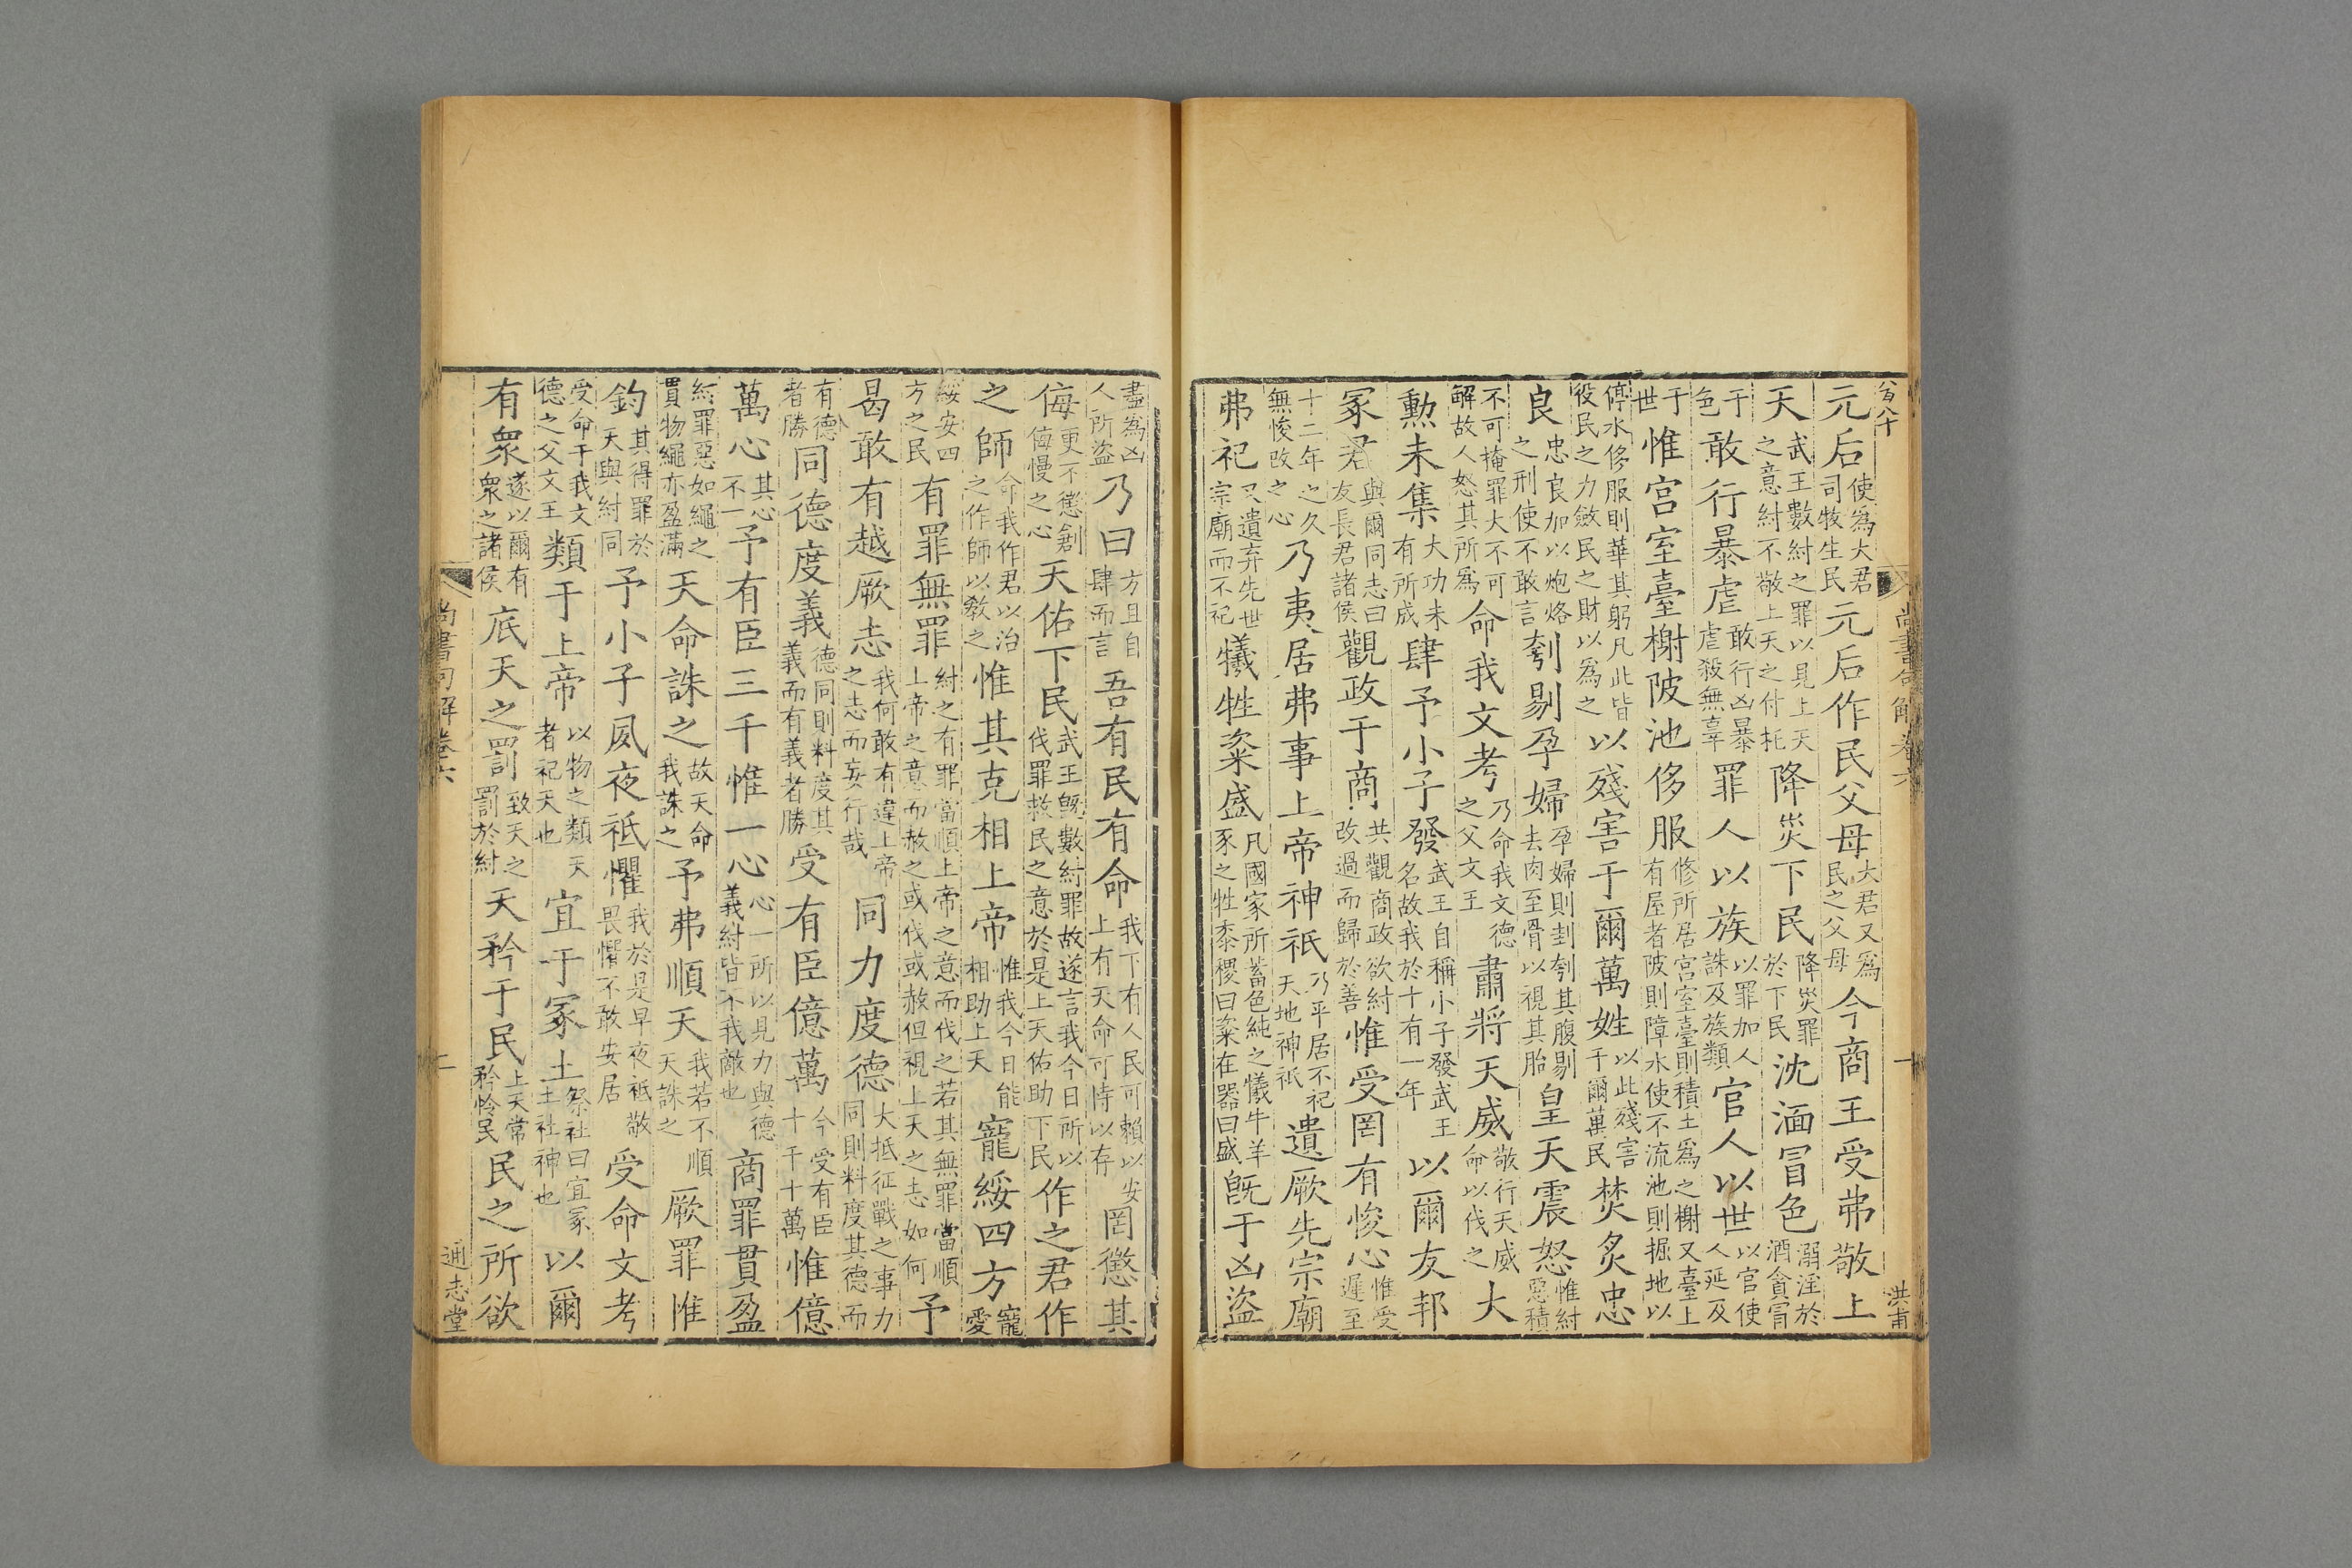 元后使為大君司牧生民元后作民父母大君又為民之父母今商王受弗敬上
天武王數紂之罪以見上天之意紂不敬上天之付托降災下民降災罪於下民沈湎冒色溺淫於酒貪冒
于色敢行暴虐敢行凶暴虐殺無辜罪人以族以罪加人誅及族類官人以世以官使人延及
于世惟宮室臺榭陂池侈服修所居宮室臺則積土為之榭又臺上有屋者陂則障水使不流池則掘地以
停水侈服則華其躬凡此皆役民之力斂民之財以為之以殘害于爾萬姓以此殘害于爾萬民焚炙忠
良忠良加以炮烙之刑使不敢言刳剔孕婦孕婦則刲刳其腹剔去肉至骨以視其胎皇天震怒惟紂惡積
不可掩罪大不可解故人怒其所為命我文考乃命我文德之父文王肅將天威敬行天威命以伐之大
勲未集大功未有所成肆予小子發武王自稱小子發武王名故我於十有一年以爾友邦
冢君與爾同志曰友長君諸侯觀政于商共觀商政欲紂改過而歸於善惟受罔有悛心惟受遲至
十二年之久無悛改之心乃夷居弗事上帝神祇乃平居不祀天地神祇遺厥先宗廟
弗祀又遺弃先世宗廟而不祀犧牲粢盛凡國家所蓄色純之犧牛羊豕之牲黍稷曰粢在器曰盛既于凶盜
尚書句解卷六
十
洪甫
盡為凶人所盜乃曰方且自肆而言吾有民有命我下有人民可賴以安上有天命可恃以存罔懲其
侮更不懲創侮慢之心天佑下民武王既數紂罪故遂言我今日所以伐罪救民之意於是上天佑助下民作之君作
之師命我作君以治之作師以教之惟其克相上帝惟我今日能相助上天寵綏四方寵愛
綏安四方之民有罪無罪紂之有罪當順上帝之意而伐之若其無罪當順上帝之意而赦之或伐或赦但視上天之志如何予
曷敢有越厥志我何敢有違上帝之志而妄行哉同力度德大抵征戰之事力同則料度其德而
有德者勝同德度義德同則料度其義而有義者勝受有臣億萬今受有臣十千十萬惟億
萬心其心不一予有臣三千惟一心心一所以見力與德義紂皆不我敵也商罪貫盈
紂罪惡如繩之貫物繩亦盈滿天命誅之故天命我誅之予弗順天我若不順天誅之厥罪惟
鈞其得罪於天與紂同予小子夙夜祗懼我於是早夜祗敬畏懼不敢安居受命文考
受命于我文德之父文王類于上帝以物之類天者祀天也宜于冢土祭社曰宜冢土社神也以爾
有衆遂以爾有衆之諸侯底天之罰致天之罰於紂天矜于民上天常矜怜民民之所欲
尚書句解卷六
通志堂